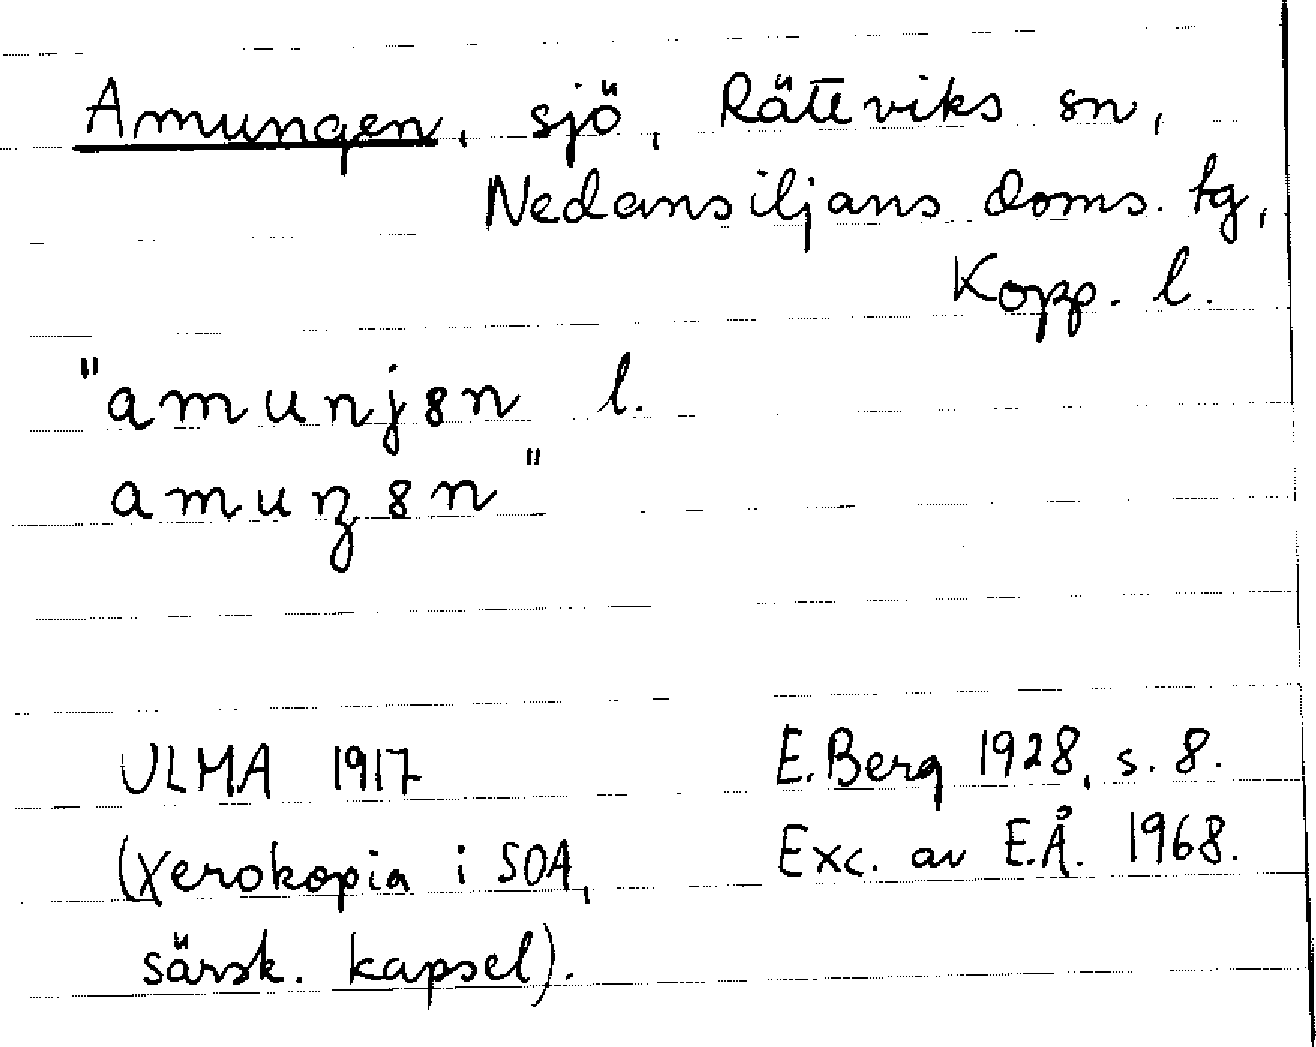 Amungen, sjö, Rättviks sn,
Nedansiljans doms. tg,
Kopp. l.
"amunjɞn l.
amuŋɞn"
ULMA 1917
(Xerokopia i SOA,
särsk. kapsel).
E. Berg 1928, s. 8.
Exc. av E.Å. 1968.